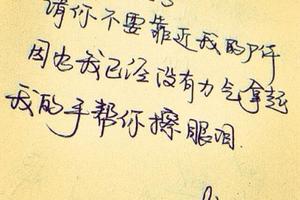 请你不要靠近我的
因为我已经没有力气拿起
我的手帮你擦眼泪.